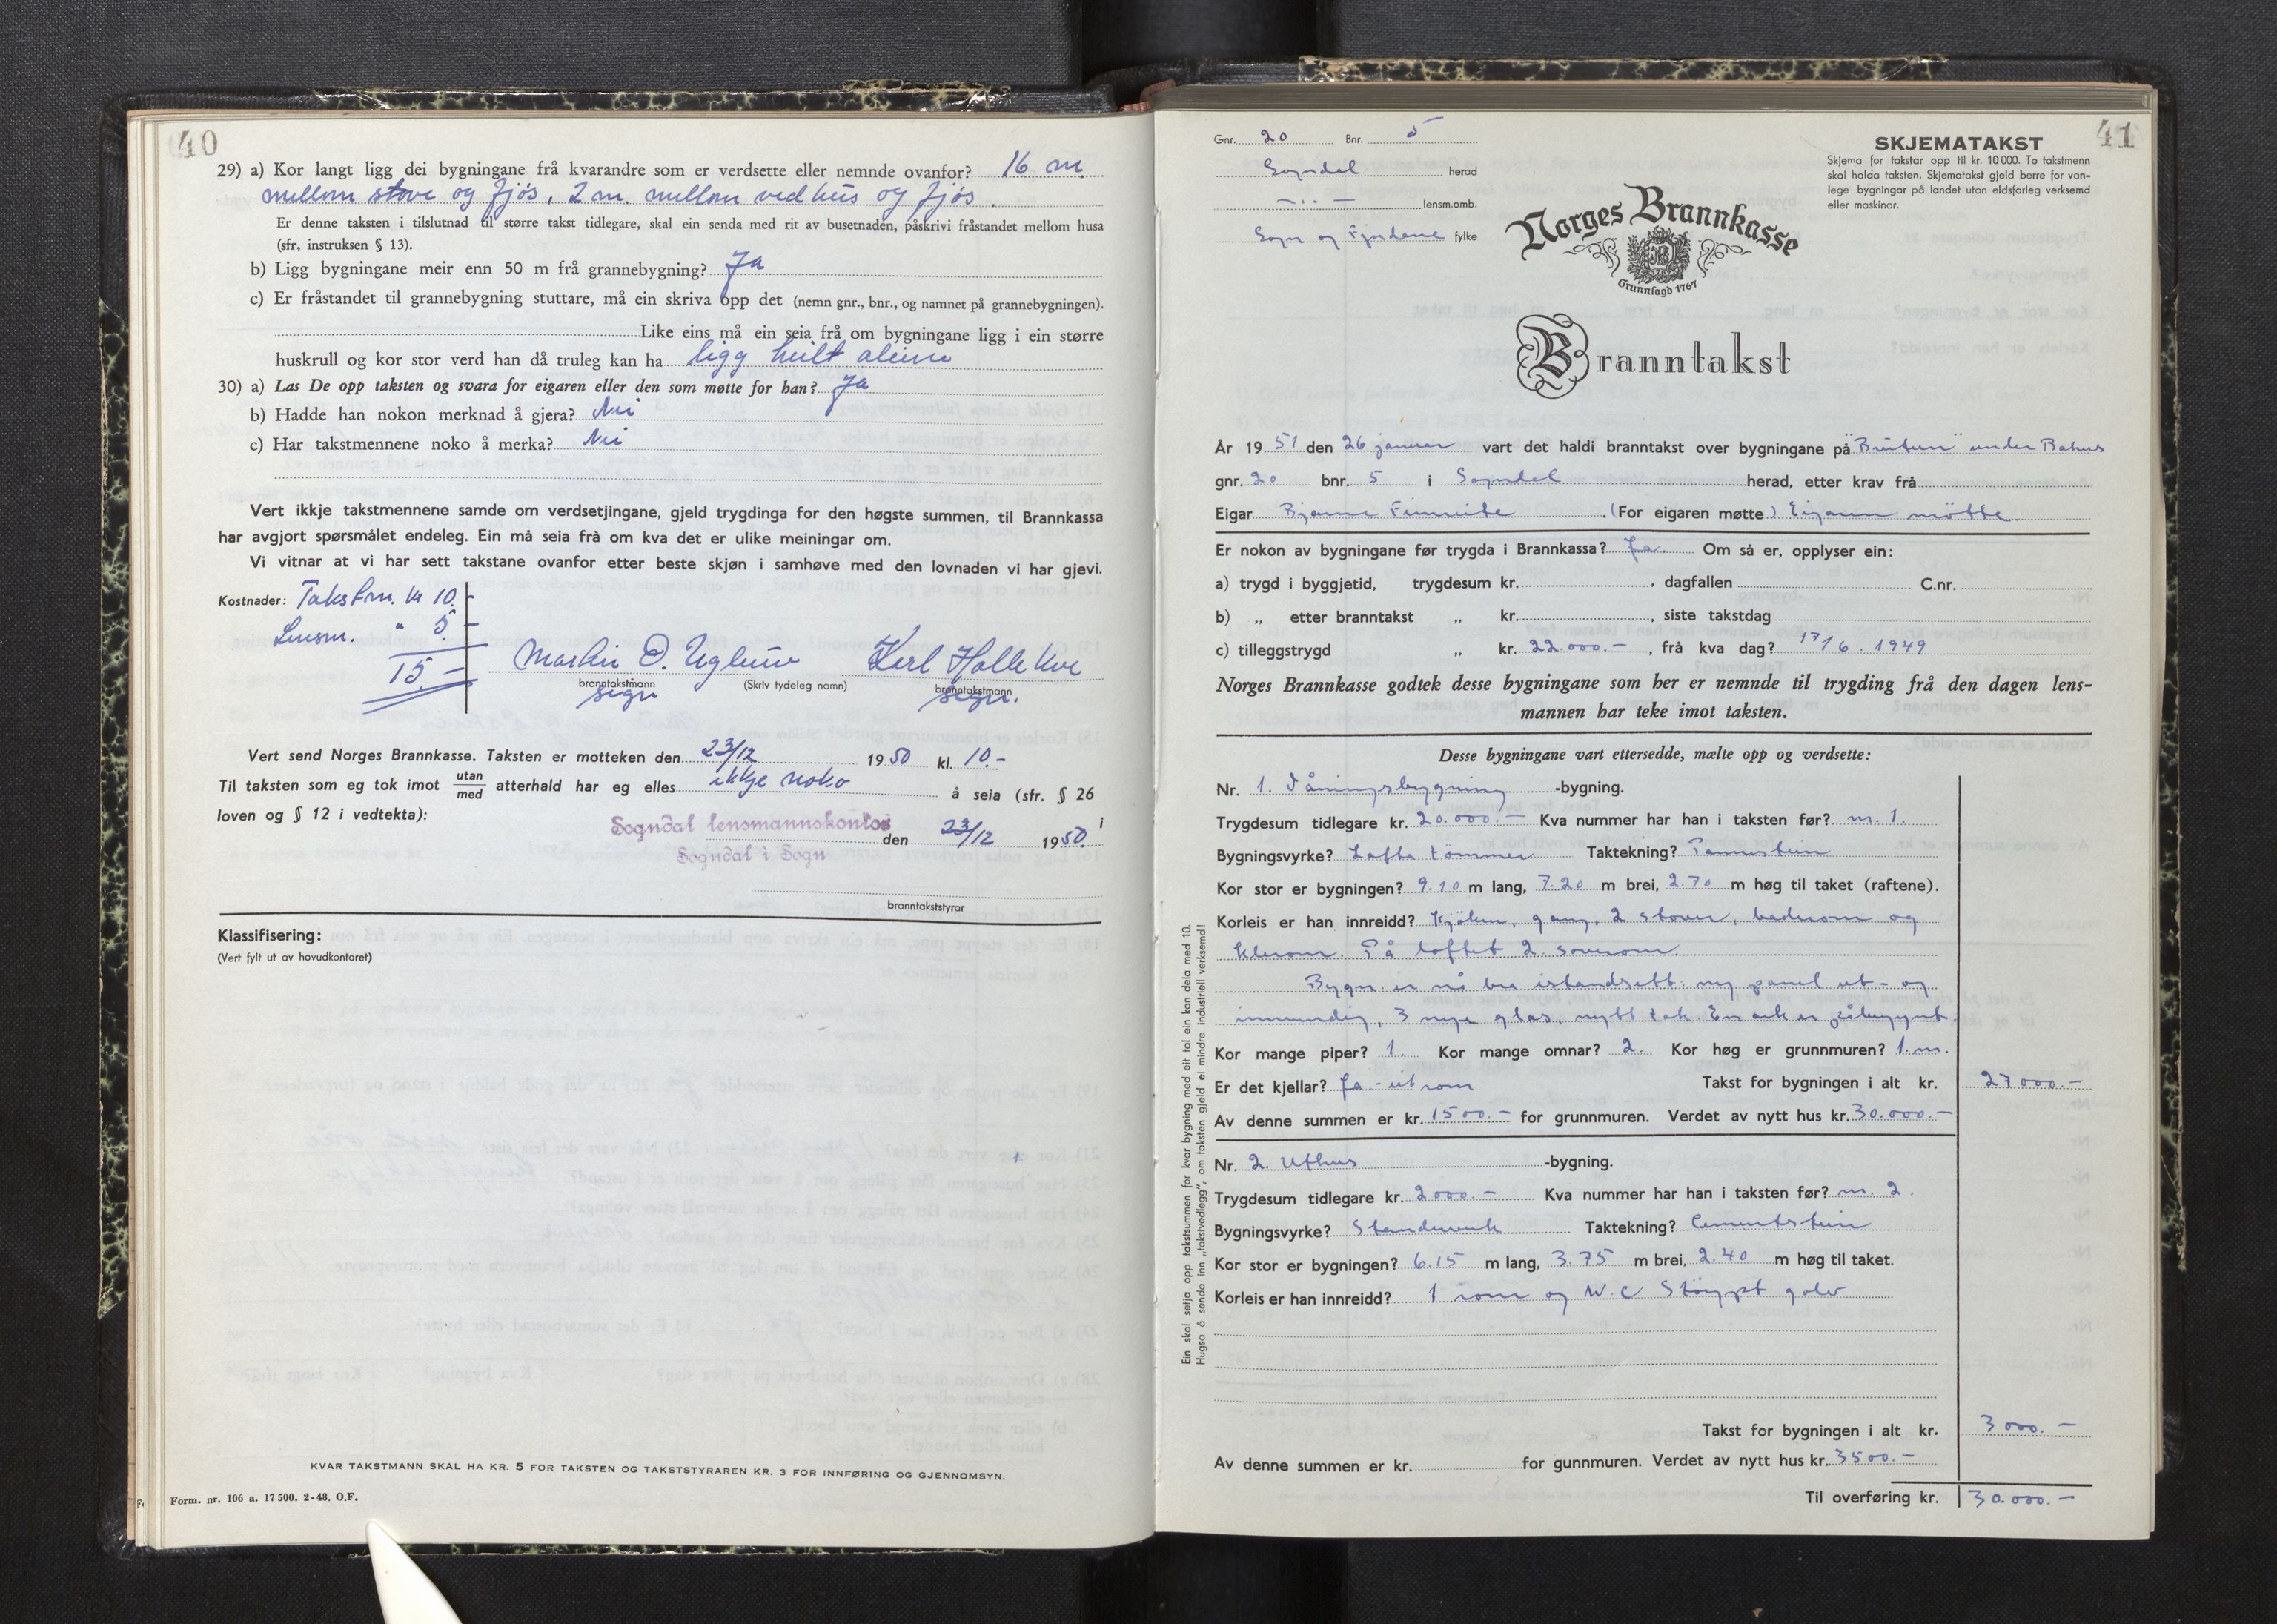 40
29) a) Kor langt ligg dei bygningane frå kvarandre som er verdsette eller nemnde ovanfor? 16 m
mellom stove og fjøs, 2 m. mellom vedhus og fjøs.
Er denne taksten i tilslutnad til større takst tidlegare, skal ein senda med rit av busetnaden, påskrivi fråstandet mellom husa
(sfr, instruksen § 13).
b) Ligg bygningane meir enn 50 m frå grannebygning? Ja
c) Er fråstandet til grannebygning stuttare, må ein skriva opp det (nemn gnr., bnr., og namnet på grannebygningen).
Like eins må ein seia frå om bygningane ligg i ein større
huskrull og kor stor verd han då truleg kan ha ligg heilt aleine
30) a) Las De opp taksten og svara for eigaren eller den som møtte for han? Ja
b) Hadde han nokon merknad å gjera? Nei
c) Har takstmennene noko å merka? Nei
Vert ikkje takstmennene samde om verdsetjingane, gjeld trygdinga for den høgste summen, til Brannkassa
har avgjort spørsmålet endeleg. Ein må seia frå om kva det er ulike meiningar om.
Vi vitnar at vi har sett takstane ovanfor etter beste skjøn i samhøve med den lovnaden vi har gjevi.
Kostnader: Takstm. kr 10.-
Lensm. " 5.-
15.-
Martin O. Uglum Karl Hollekve
branntakstmann (Skriv tydeleg namn) branntakstmann
sign sign.
Vert send Norges Brannkasse. Taksten er motteken den 23/12 1950 kl. 10.-
Til taksten som eg tok imot utan/med atterhald har eg elles ikkje noko å seia (sfr. § 26 i
loven og § 12 i vedtekta):
Sogndal lensmannskontor den 23/12 1950.
Sogndal i Sogn
branntakststyrar
Klassifisering:
(Vert fylt ut av hovudkontoret)
KVAR TAKSTMANN SKAL HA KR. 5 FOR TAKSTEN OG TAKSTSTYRAREN KR. 3 FOR INNFØRING OG GJENNOMSYN.
Form. nr. 106 a. 17 500. 2-48. O.F.
41
Gnr. 20 Bnr. 5
Sogndal herad
— " — lensm.omb.
Sogn og Fjordane fylke
SKJEMATAKST
Skjema for takstar opp til kr. 10 000. To takstmenn
skal halda taksten. Skjematakst gjeld berre for van-
lege bygningar på landet utan eldsfarleg verksemd
eller maskinar.
Norges Brannkasse
Grunnlagd 1767
Branntakst
År 1951 den 26 januar vart det haldi branntakst over bygningane på "Bruten" under Bahus
gnr. 20 bnr. 5 i Sogndal herad, etter krav frå
Eigar Bjarne Fimreite (For eigaren møtte) Eigaren møtte.
Er nokon av bygningane før trygda i Brannkassa? Ja. Om så er, opplyser ein:
a) trygd i byggjetid, trygdesum kr. , dagfallen C.nr.
b) „ etter branntakst „ kr. , siste takstdag
c) tilleggstrygd „ kr. 22.000.- , frå kva dag? 17/6. 1949
Norges Brannkasse godtek desse bygningane som her er nemnde til trygding frå den dagen lens-
mannen har teke imot taksten.
Desse bygningane vart ettersedde, mælte opp og verdsette:
Nr. 1. Våningsbygning -bygning.
Trygdesum tidlegare kr. 20.000.- Kva nummer har han i taksten før? nr. 1.
Bygningsvyrke? Lafta tømmer Taktekning? Pannestein
Kor stor er bygningen? 9.10 m lang, 7.20 m brei, 2.70 m høg til taket (raftene).
Korleis er han innreidd? Kjøken, gang, 2 stover, baderom og
klerom. På loftet 2 soverom.
Bygn. er nå bra istandsett: ny panel ut- og
innvendig, 3 nye glas, nytt tak. En ark er påbygynt.
Kor mange piper? 1. Kor mange omnar? 2. Kor høg er grunnmuren? 1.m.
Er det kjellar? Ja - eit rom Takst for bygningen i alt kr. 27000.-
Av denne summen er kr. 1500.- for grunnmuren. Verdet av nytt hus kr. 30.000.-
Nr. 2. Uthus -bygning.
Trygdesum tidlegare kr. 2000.- Kva nummer har han i taksten før? nr. 2.
Bygningsvyrke? Standverk Taktekning? Cementstein
Kor stor er bygningen? 6.15 m lang, 3.75 m brei, 2.40 m høg til taket.
Korleis er han innreidd? 1 rom og W.C Støypt golv
Takst for bygningen i alt kr. 3000.-
Av denne summen er kr. for gunnmuren. Verdet av nytt hus kr. 3500.-
Til overføring kr. 30.000.-
Ein skal setja opp takstsummen for kvar bygning med eit tal ein kan dela med 10.
Hugsa å senda inn „takstvedlegg", om taksten gjeld ei mindre industriell verksemd!